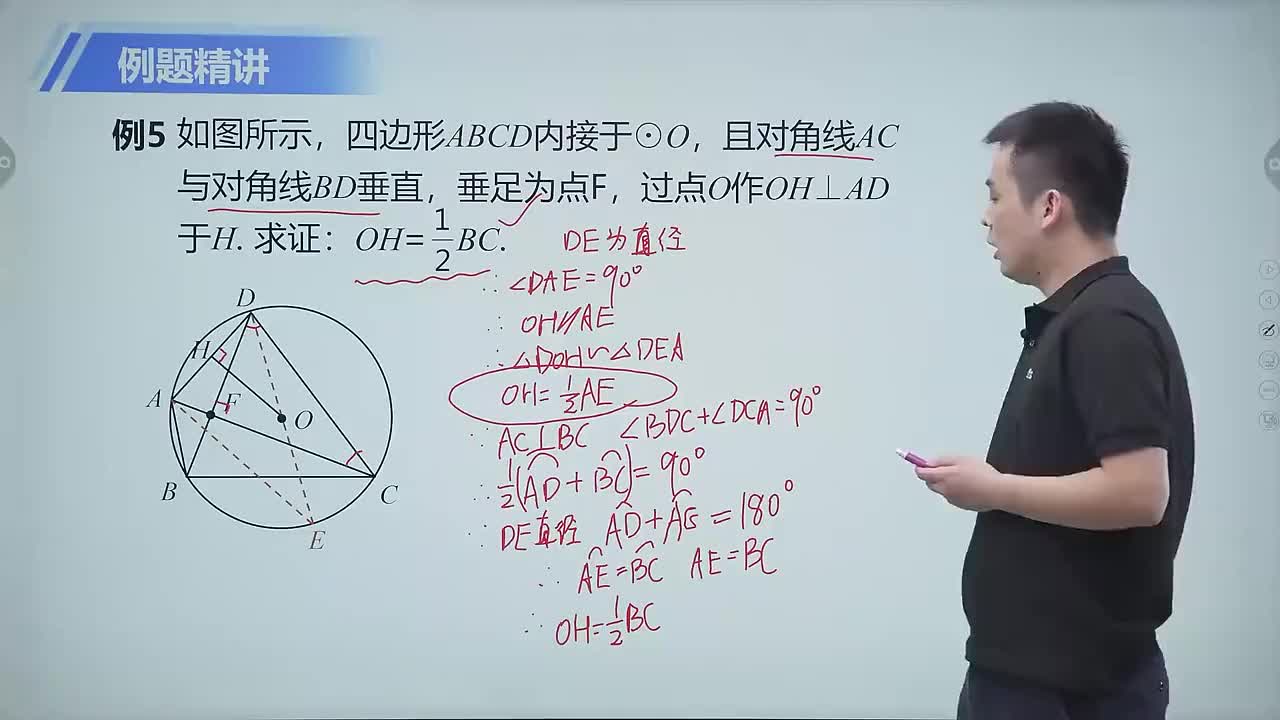 例题精讲
例5 如图所示，四边形ABCD内接于⊙O，且对角线AC
与对角线BD垂直，垂足为点F，过点O作OH⊥AD
于H. 求证：OH=1/2BC.
DE为直径
∵ ∠DAE=90°
∴ OH∥AE
∴ △DOH∽△DEA
OH=1/2AE
∵ AC⊥BC ∠BDC+∠DCA=90°
∴ 1/2(AD+BC)=90°
∵ DE直径 AD+AG=180°
∴ AE=BC AE=BC
∴ OH=1/2BC
D
H
A
F
O
B
C
E